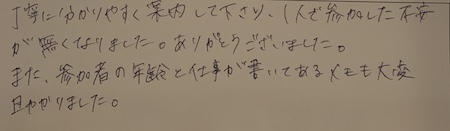 丁寧に分かりやすく案内して下さり、1人で参加した不安
が無くなりました。ありがとうございました。
また、参加者の年齢と仕事が書いてあるメモも大変
助かりました。